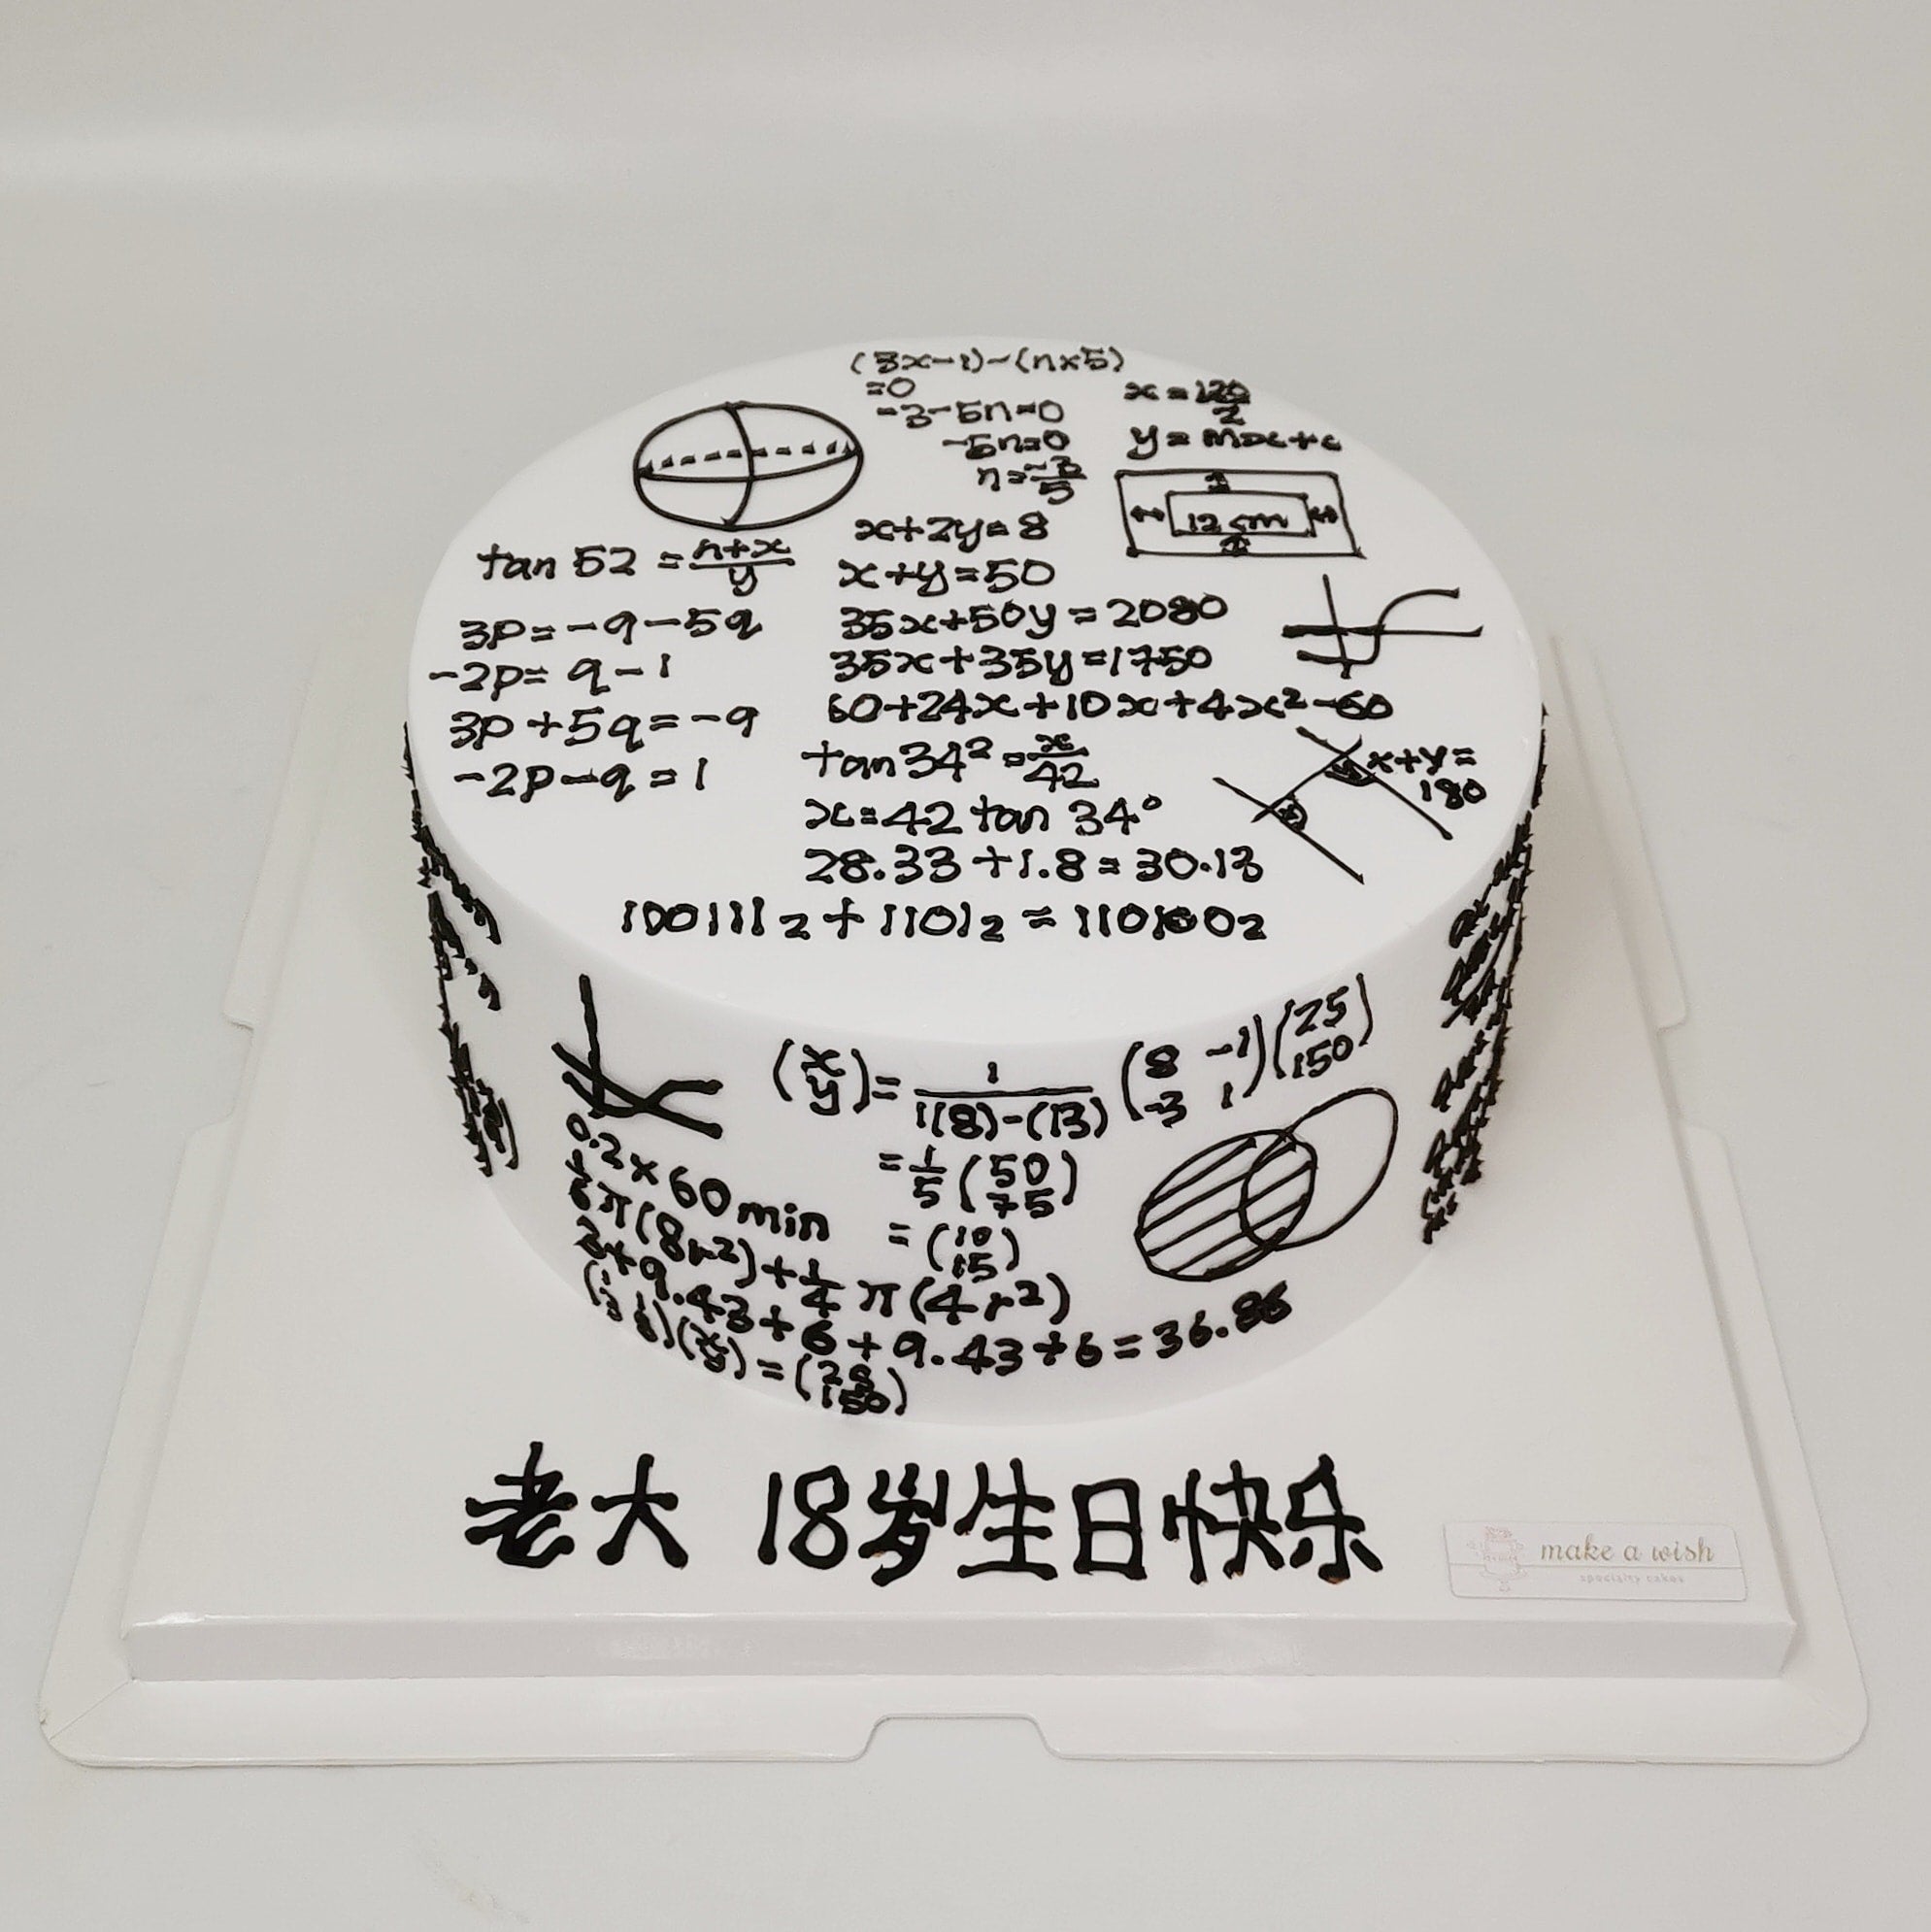 (3x-1)-(n×5)
=0
-3-5n=0
-5n=0
n=-3/5
x=120/2
y=mx+c
12cm
tan 52 = n+x/y
3p=-9-5q
-2p= q-1
3p+5q=-9
-2p-q=1
x+2y=8
x+y=50
35x+50y=2080
35x+35y=1750
60+24x+10x+4x²-60
tan34²=x/42
x=42 tan 34°
28.33+1.8=30.13
x+y=
180
100111₂+1101₂=110100₂
(x y)=1/1(8)-(13) (8 -1 -3 1)(25 150)
=1/5(50 75)
=(10 15)
0.2×60min
π(8r²)+1/4 π(4r²)
2×9.43+6+9.43+6=36.86
(x y)=(25 150)
老大 18岁生日快乐
make a wish
specialty cakes